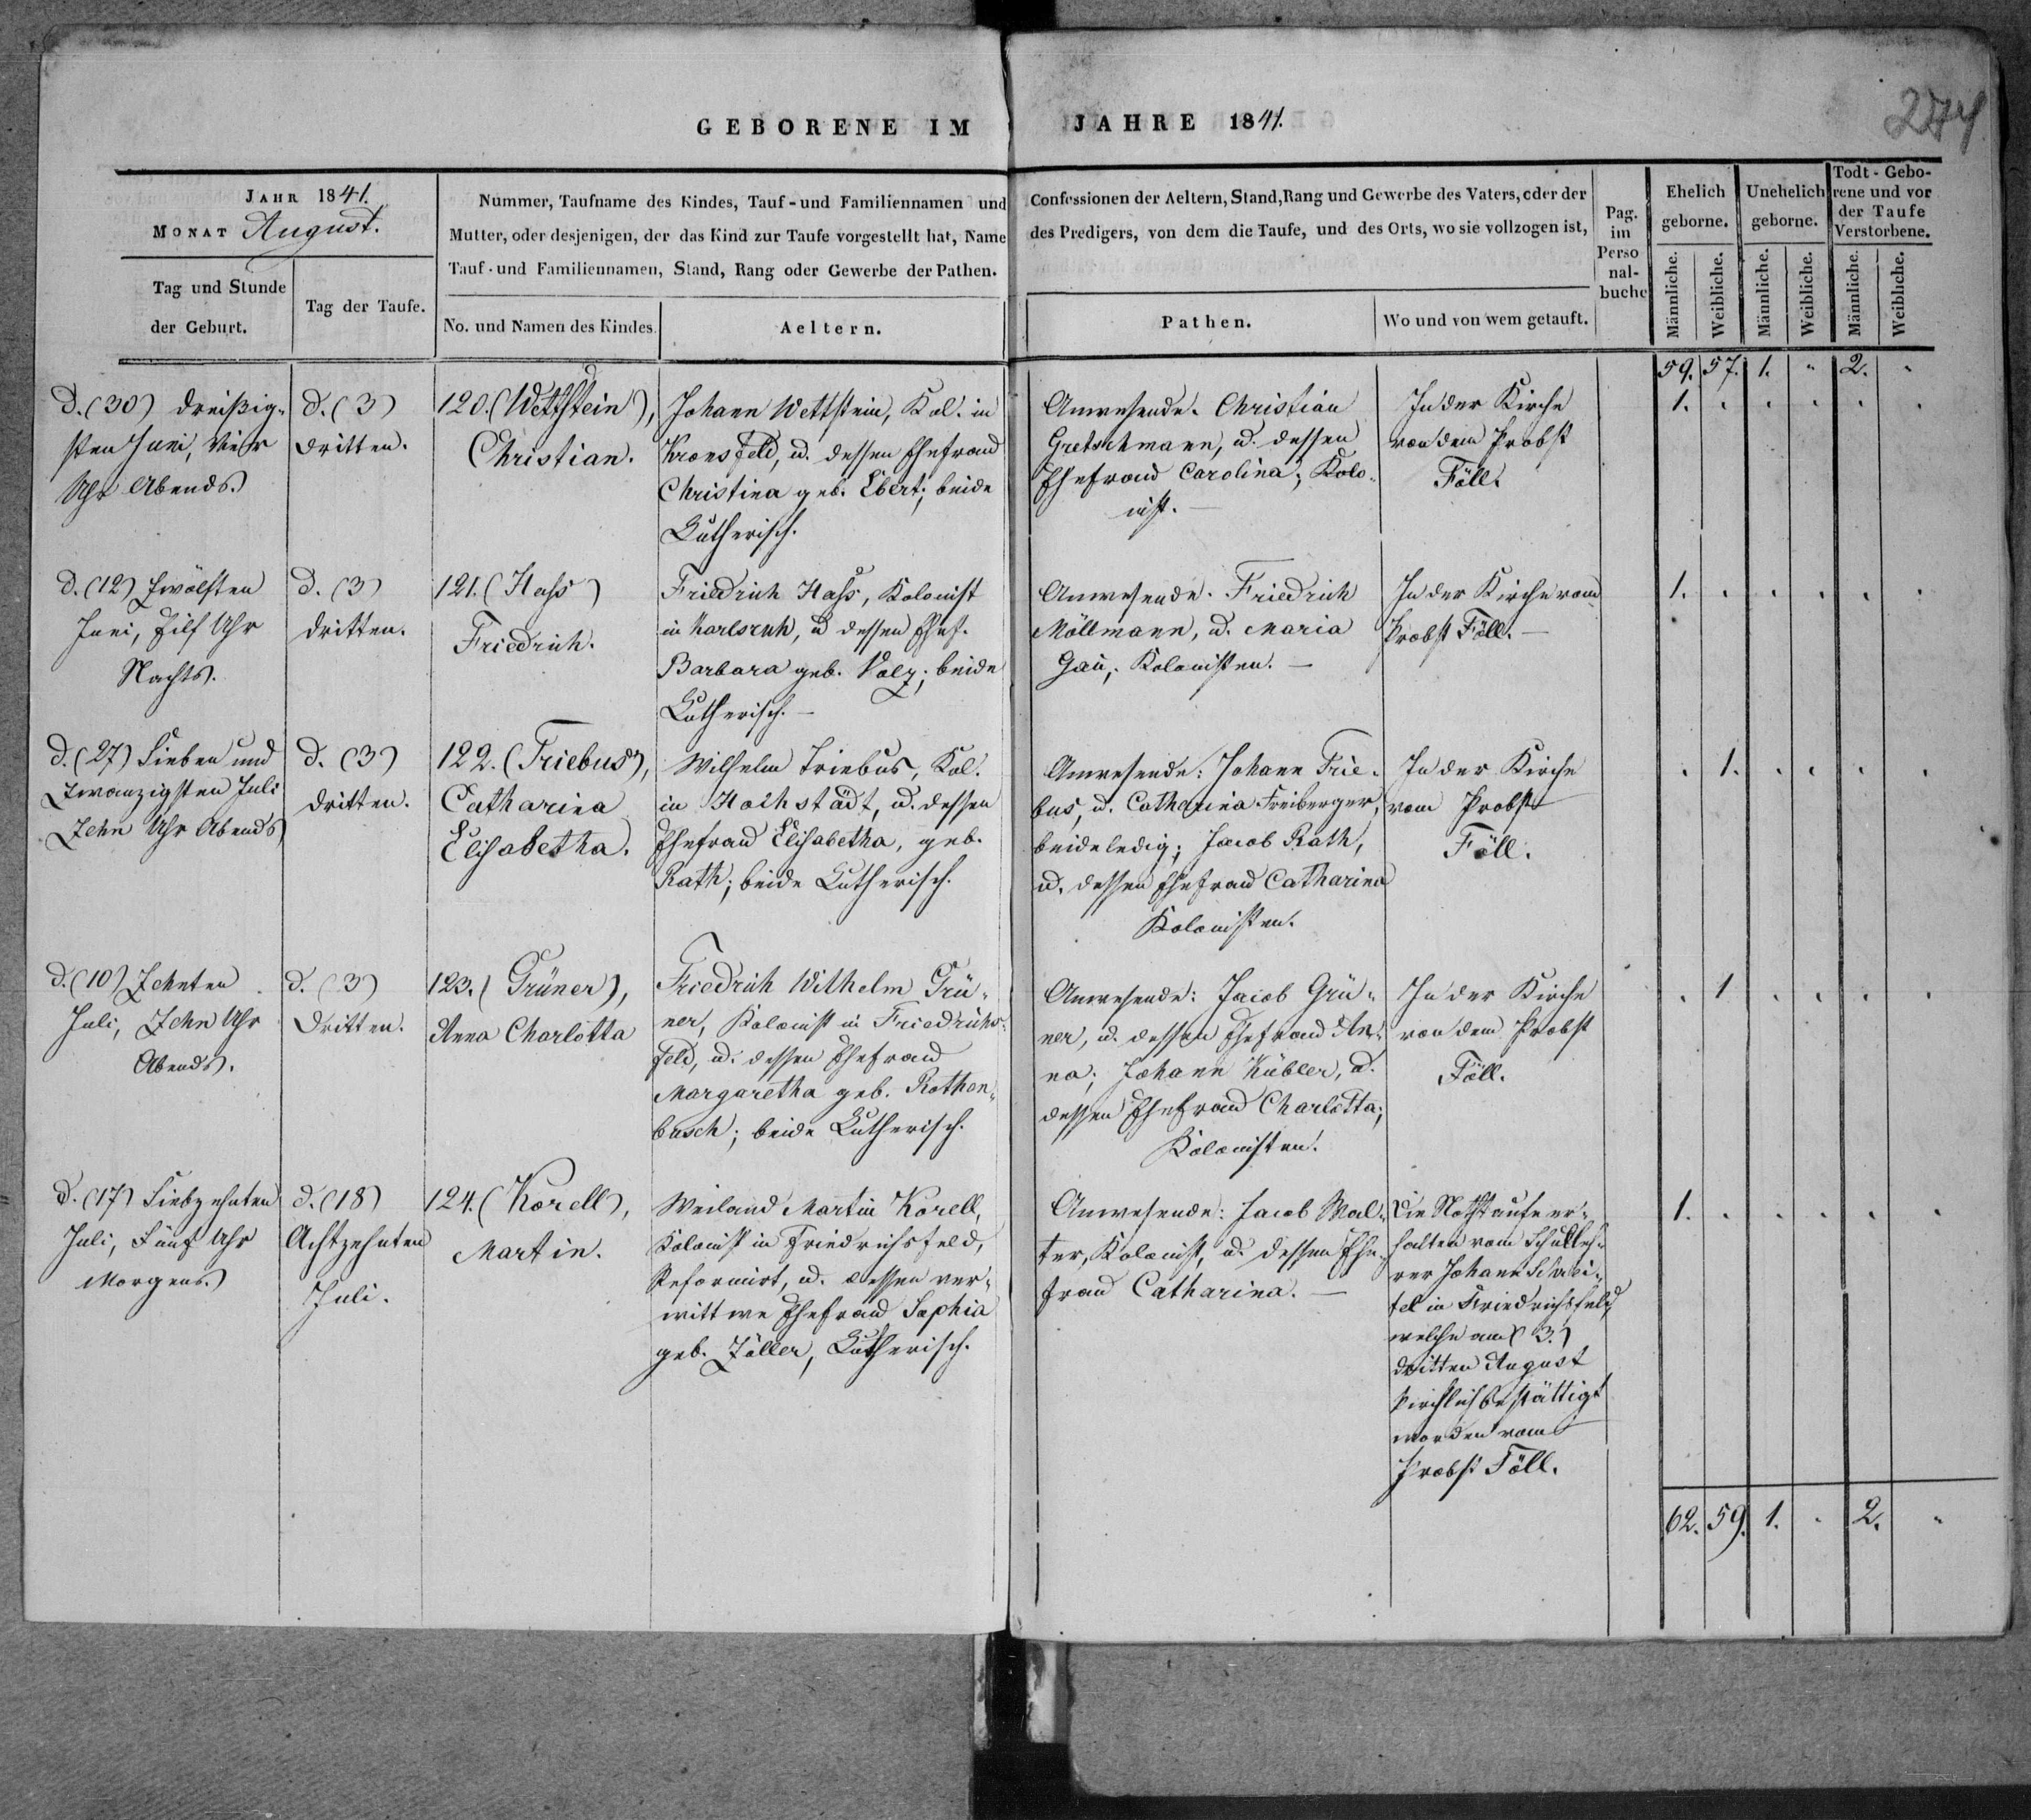 274
GEBORENE IM JAHRE 1841.
JAHR 1841.
MONAT August.
Tag und Stunde
der Geburt.
Tag der Taufe.
Nummer, Taufname des Kindes, Tauf- und Familiennamen und
Mutter, oder desjenigen, der das Kind zur Taufe vorgestellt hat, Name
Tauf- und Familiennamen, Stand, Rang oder Gewerbe der Pathen.
No. und Namen des Kindes.
Aeltern.
Confessionen der Aeltern, Stand, Rang und Gewerbe des Vaters, oder der
des Predigers, von dem die Taufe, und des Orts, wo sie vollzogen ist,
Pathen.
Wo und von wem getauft.
Pag.
im
Perso
nal-
buche
Ehelich
geborne.
Unehelich
geborne.
Todt-Gebo-
rene und vor
der Taufe
Verstorbene.
Männliche.
Weibliche.
Männliche.
Weibliche.
Männliche.
Weibliche.
59. 57. 1. " 2. "
d. (30) dreißig-
sten Juni, Vier
Uhr Abends.
d. (3)
dritten.
120. (Wettstein),
Christian.
Johann Wettstein, Kol. in
Kronsfeld, u. dessen Ehefrau
Christina geb. Ebert; beide
Lutherisch.
Anwesende. Christian
Gretschmann, u. dessen
Ehefrau Carolina; Kolo-
nist. —
In der Kirche
von dem Probst
Föll.
1. . . . . .
d. (12) Zwölften
Juni, Eilf Uhr
Nachts.
d. (3)
dritten.
121. (Hass)
Friedrich.
Friedrich Hass, Kolonist
in Karlsruh, u dessen Ehef.
Barbara geb. Volz; beide
Lutherisch. —
Anwesende. Friedrich
Möllmann, u. Maria
Gau; Kolonisten. —
In der Kirche vom
Probst Föll. —
1. . . . . .
d. (27) Sieben und
Zwanzigsten Juli
Zehn Uhr Abends
d. (3)
dritten.
122. (Triebus),
Catharina
Elisabetha.
Wilhelm Triebus, Kol.
in Hochstädt, u. dessen
Ehefrau Elisabetha, geb.
Rath; beide Lutherisch.
Anwesende: Johann Trie-
bus, u. Catharina Freiberger,
beide ledig; Jacob Rath,
u. dessen Ehefrau Catharina
Kolonisten.
In der Kirche
vom Probst
Föll.
. 1. . . . .
d. (10) Zehnten
Juli, Zehn Uhr
Abends.
d. (3)
dritten.
123. (Grüner),
Anna Charlotta
Friedrich Wilhelm Grü-
ner, Kolonist in Friedrichs-
feld, u. dessen Ehefrau
Margaretha geb. Rothen-
busch; beide Lutherisch.
Anwesende: Jacob Grü-
ner, u. dessen Ehefrau An-
na; Johann Kübler, u.
dessen Ehefrau Charlotta;
Kolonisten.
In der Kirche
von dem Probst
Föll.
. 1 . . . .
d. (17) Siebzehnten
Juli, Fünf Uhr
Morgens.
d. (18)
Achtzehnten
Juli.
124. (Korell),
Martin.
Weiland Martin Korell,
Kolonist in Friedrichsfeld,
Reformirt, u. dessen ver-
wittwe Ehefrau Sophia
geb. Zöller, Lutherisch.
Anwesende: Jacob Wal-
ter, Kolonist, u. dessen Ehe-
frau Catharina. —
Die Nothtaufe er-
halten vom Schulleh-
rer Johann
in Friedrichsfeld,
welche am (3.)
dritten August
kirchlich bestättigt
worden vom
Probst Föll.
1. . . . . .
62. 59. 1. " 2. "